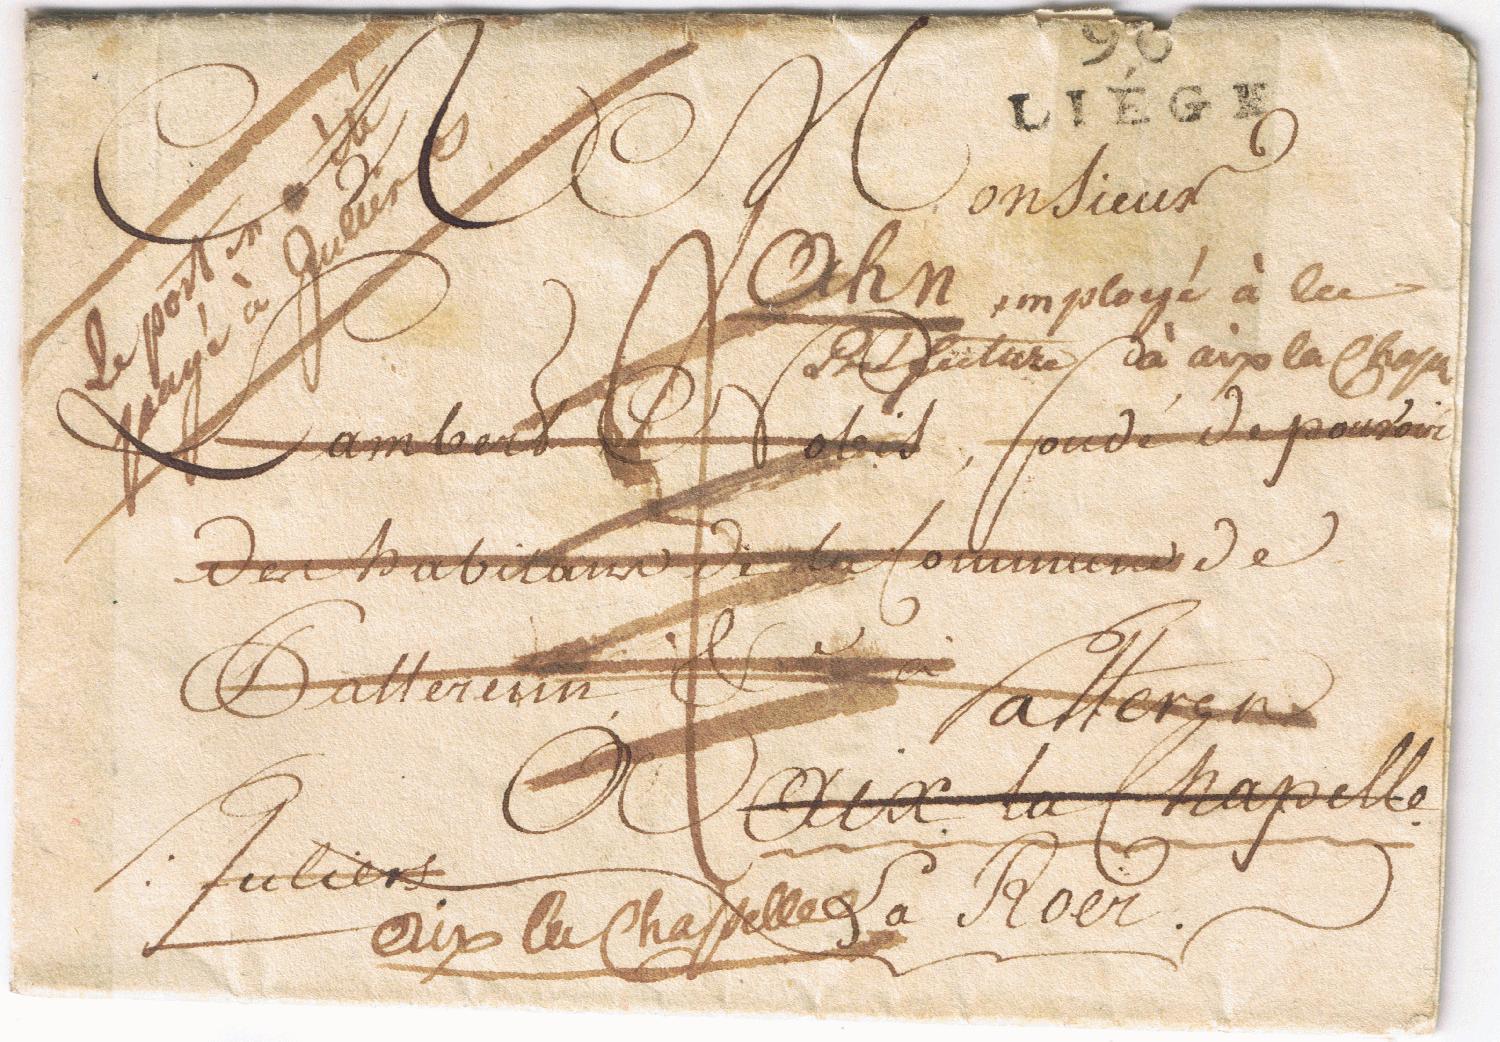 96
LIÉGE
le port en été
payé à Juliers
Monsieur
Ahn employé à la
Préfecture à aix la Chapel
Lambert Nobis, fondé de pouvoir
des habitans de la Commune de
Pattern
aix la Chapelle
Juliers
aix la Chappelle
La Roër.